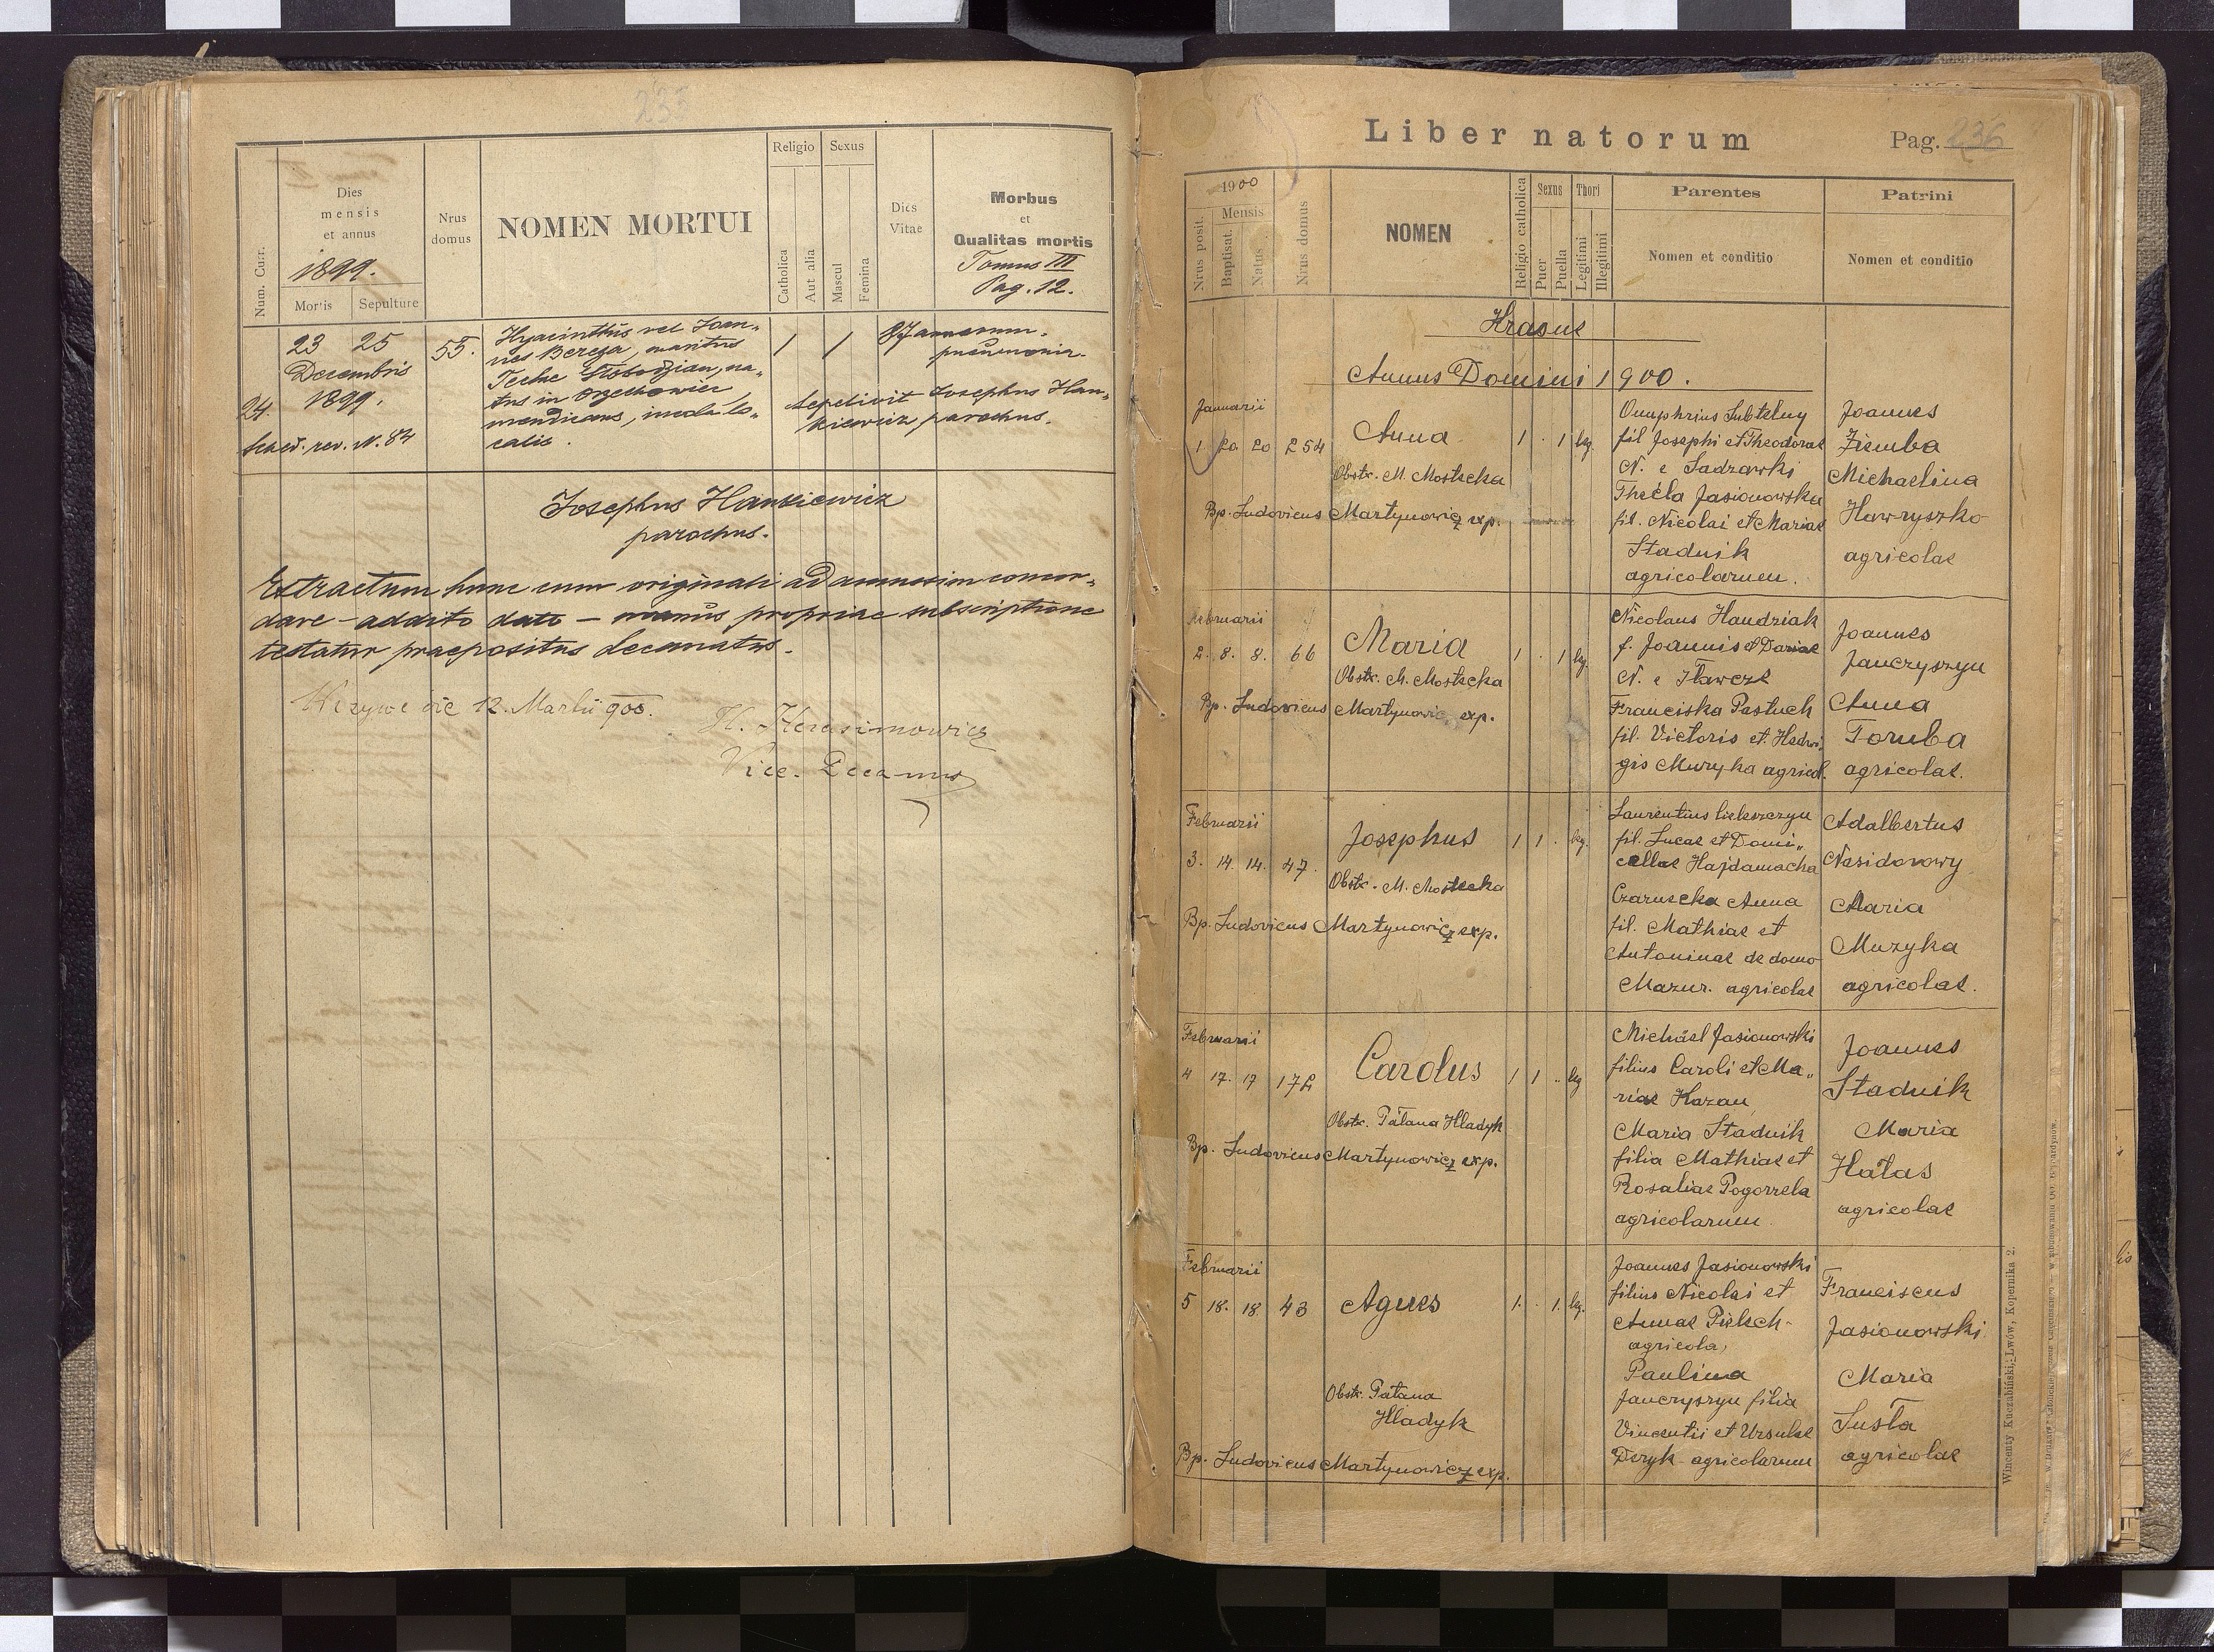 235
Num. Curr.
Dies
mensis
et annus
1899.
Mortis Sepulture
Nrus
domus
NOMEN MORTUI
Religio Sexus
Catholica
Aut alia
Mascul
Femina
Dies
Vitae
Morbus
et
Qualitas mortis
Tomus III
Pag. 12.
23 25
Decembris
1899.
24.
rev. N. 84
55.
Hyacinthus vel Joan„
nes Bereza, maritus
Teclae na„
tus in Orzechowiec
mendicans, incola lo„
calis.
1 1
87 annorum.
pneumonia.
Sepelivit Josephus Han„
kiewicz parochus.
Josephus Hankiewicz
parochus.
Extractum hunc cum originali ad amussim concor„
dare – addito dato – manus propriae subscriptione
testatur praepositus decanatus.
die 12. Martii 900.
H. Herasimowicz
Vice-Decanus
Liber natorum
Pag. 236
1900
Mensis
Nrus posit.
Baptisat.
Natus
Nrus domus
NOMEN
Religio catholica
Sexus
Puer
Puella
Thori
Legitimi
Illegitimi
Parentes
Nomen et conditio
Patrini
Nomen et conditio
Annus Domini 1900.
Januarii
1. 20 20 254
Anna
Obstr. M. Mostecka
Bp. Ludovicus Martynowicz exp.
1 . 1 leg.
Onuphrius Subtelny
fil Josephi et Theodorae
N. e Sadzawki
Thecla Jasionowska
fil. Nicolai et Mariae
Stadnik
agricolarum.
Joannes
Ziemba
Michaelina
Hawryszko
agricolae
Februarii
2. 8. 8. 66
Maria
Obstr. M. Mostecka
Bp. Ludovicus Martynowicz exp.
1 . 1 leg.
Nicolaus Handziak
f. Joannis et Dariae
N. e Iławcze
Franciska Pastuch
fil. Victoris et Hedwi„
gis Muzyka agricol.
Joannes
Janczyszyn
Anna
Toruba
agricolae.
Februarii
3. 14. 14. 47.
Josephus
Obstr. M. Mostecka
Bp. Ludovicus Martynowicz exp.
1 1 . leg.
Laurentius
fil. Lucae et Domi„
cellae Hajdamacha
Czarnecka Anna
fil. Mathiae et
Antoninae de domo
Mazur. agricolae
Adalbertus
Nesidorowy
Maria
Muzyka
agricolae.
Februarii
4 17. 17 172
Carolus
Obstr. Tatana Hladyk
Bp. Ludovicus Martynowicz exp.
1 1 .. leg
Michael Jasionowski
filius Caroli et Ma„
riae Kazan
Maria Stadnik
filia Mathiae et
Rosaliae Pogorzela
agricolarum
Joannes
Stadnik
Maria
Hałas
agricolae
Februarii
5 18. 18. 43
Agnes
Obstr. Tatana
Hladyk
Bp. Ludovicus Martynowicz exp.
1. . 1. leg.
Joannes Jasionowski
filius Nicolai et
Annae Pielech-
agricola,
Paulina
Janczyszyn filia
Vincentii et Ursulae
Deryk - agricolarum
Franciscus
Jasionowski
Maria
Susła
agricolae
Wincenty Kuczabiński, Lwów, Kopernika 2.